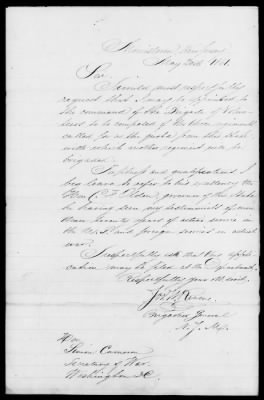 Morristown, New Jersey
May 20th 1861.
Sir
I would most respectfully
request that I may be appointed to
the command of the Brigade of Volun
teers to be composed of the three regiments
called for as the quota from this State
with which another regiment will be
brigaded.
I beg leave to refer to his excellency the
Hon C. S. Olden, governor of the State
he having seen my testimonials of more
than twenty years of active service in
the U.S. and foreign service in actual
war.
I respectfully ask that this appli
cation may be filed at the Department.
Respectfully your obt servt.
Brigadier General
N. J. Ma.
Hon
Simon Cameron
Secretary of War
Washington D.C.